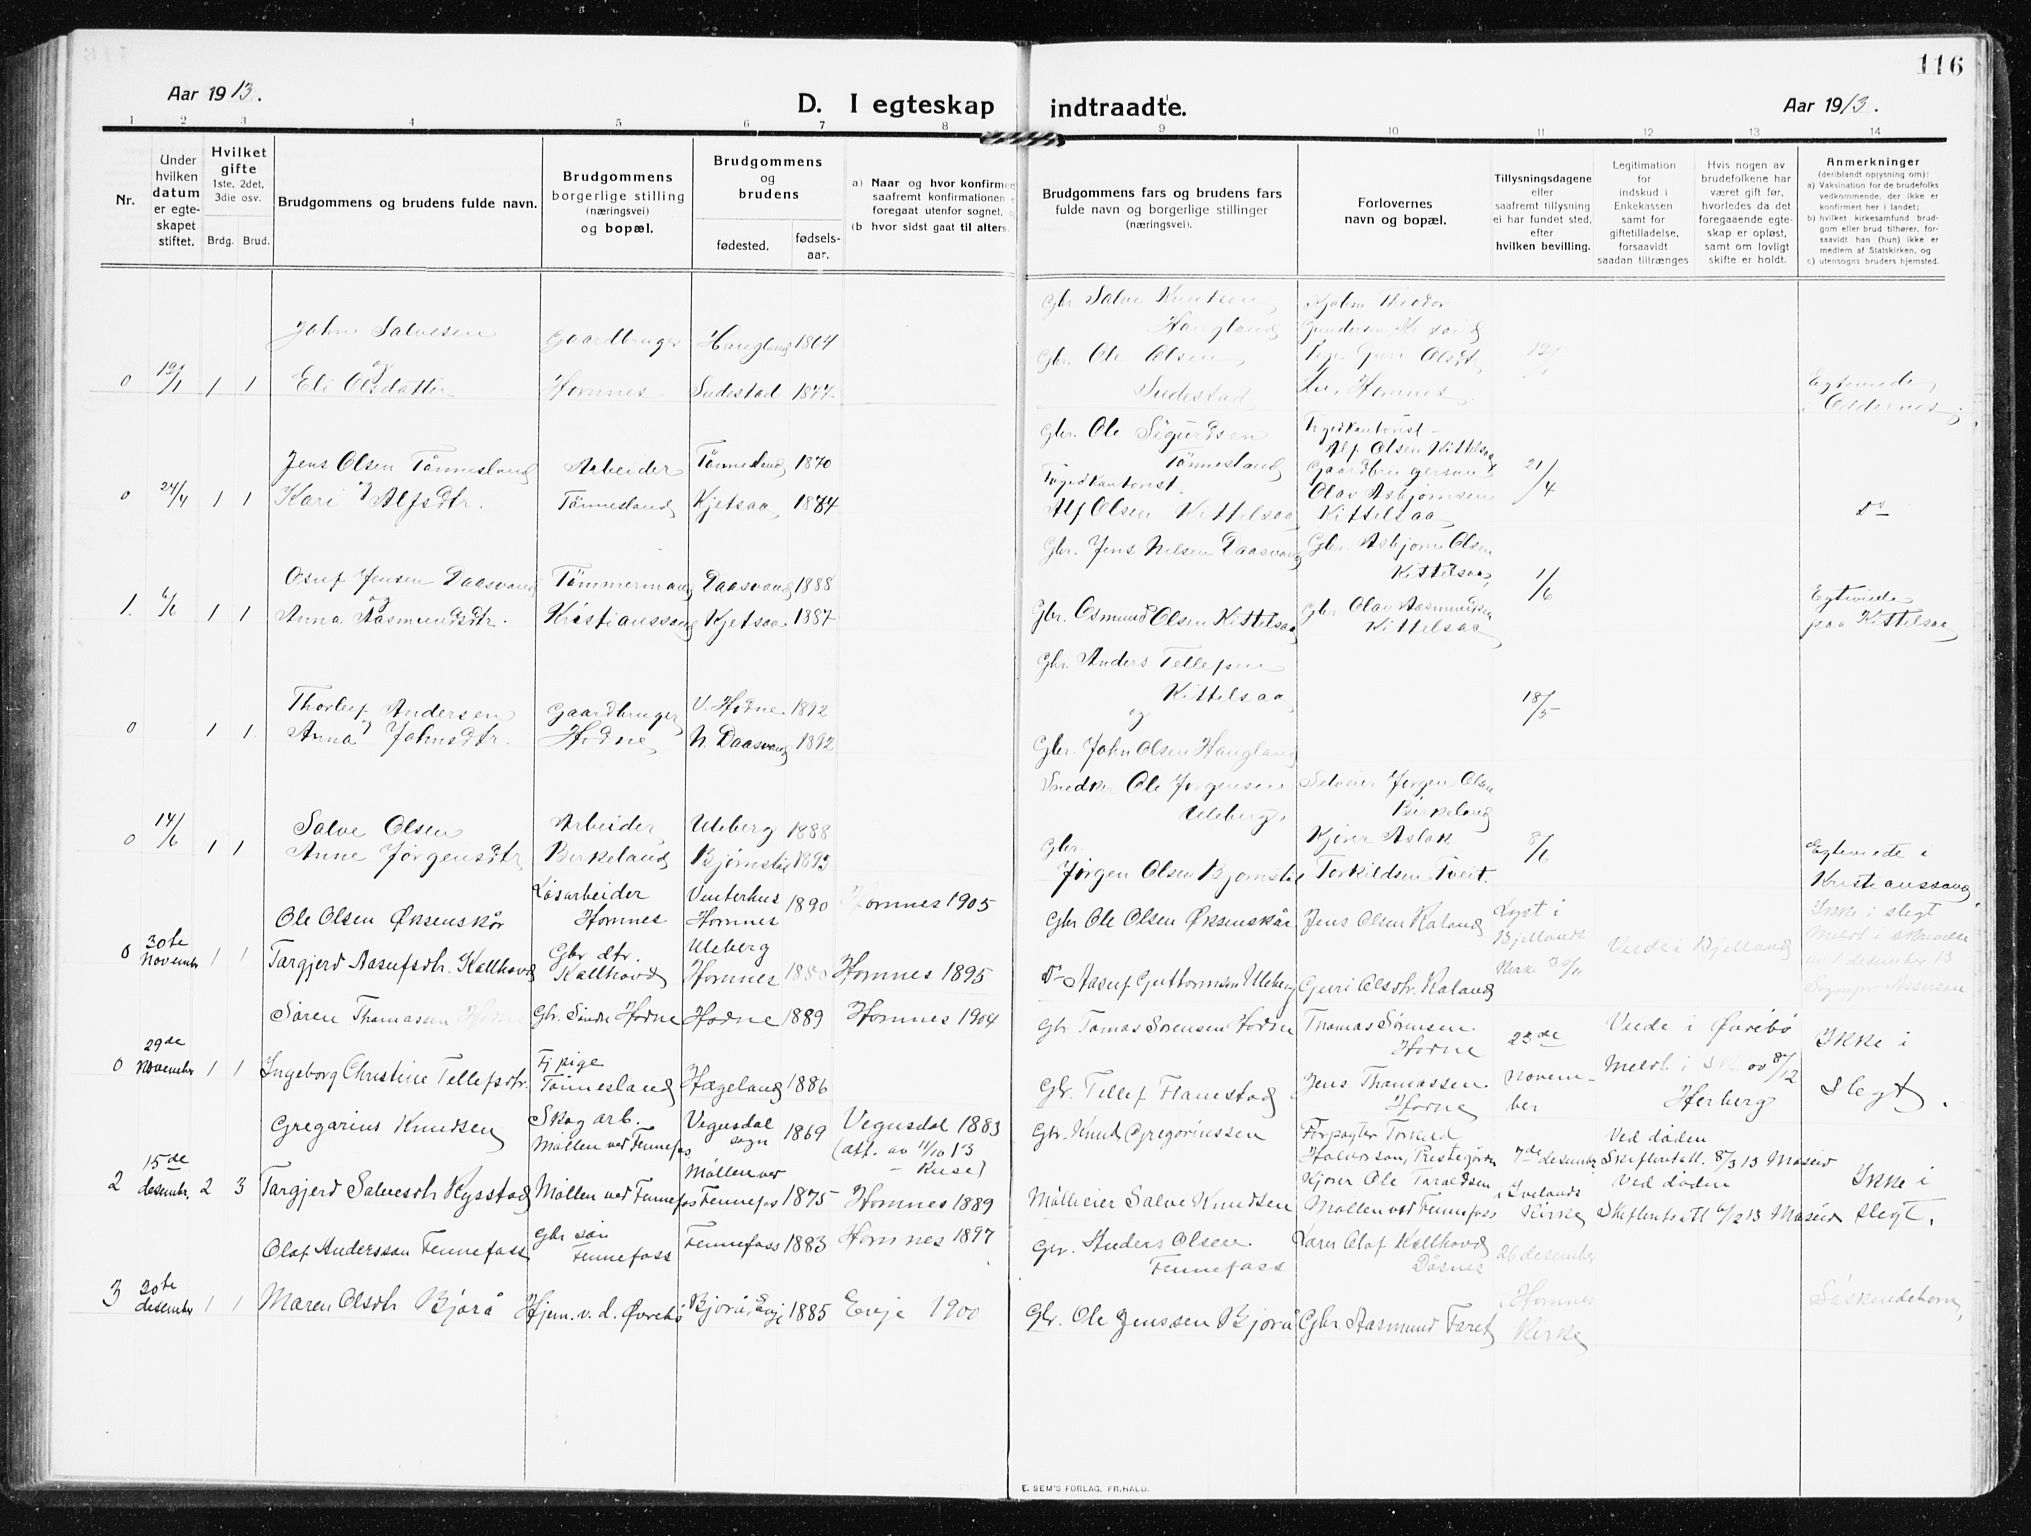 116
Aar 1913.
D. I egteskap indtraadte.
Aar 1913.
1 2 3 4 5 6 7 8 9 10 11 12 13 14
Nr.
Under
hvilken
datum
er egte-
skapet
stiftet.
Hvilket
gifte
1ste, 2det,
3die osv.
Brdg. Brud.
Brudgommens og brudens fulde navn.
Brudgommens
borgerlige stilling
(næringsvei)
og bopæl.
Brudgommens
og
brudens
fødested.
fødsels-
aar.
a) Naar og hvor konfirmer
saafremt konfirmationen
foregaat utenfor sognet,
(b hvor sidst gaat til alters.
Brudgommens fars og brudens fars
fulde navn og borgerlige stillinger
(næringsvei).
Forlovernes
navn og bopæl.
Tillysningsdagene
eller
saafremt tillysning
ei har fundet sted,
efter
hvilken bevilling.
Legitimation
for
indskud i
Enkekassen
samt for
giftetilladelse,
forsaavidt
saadan tiltrænges
Hvis nogen av
brudefolkene har
været gift før,
hvorledes da det
foregaaende egte-
skap er opløst,
samt om lovligt
skifte er holdt.
Anmerkninger
(deriblandt oplysning om):
a) Vaksination for de brudefolks
vedkommende, der ikke er
konfirmert her i landet;
b) hvilket kirkesamfund brud-
gom eller brud tilhører, for-
saavidt han (hun) ikke er
medlem af Statskirken, og
c) utensogns bruders hjemsted.
Gbr. Salve Knutsen
Haugland
John Salvesen Gaardbruger Haugland 1864
Gbr. Ole Olsen
0 1 1 Eli Olsdatter Hornnes Sudestad 1877
Sudestad
Hornnes
Egteviede
i Oddernes
Gbr. Ole Sigurdsen
Tönnesland
Alf Olsen Kittelsaa
Jens Olsen Tönnesland Arbeider Tönnesland 1870
Gaardbrugersøn
21/4
0 24/4 1 1 Kari Alfsdtr. Tönnesland Kjetsaa 1874
Alf Olsen Kittelsaa
Olav Asbjørnsen
Kittelsaa
do
Gbr. Jens Nilsen Daasvand
Gbr. Asbjørn Olsen
Kittelsaa
Osuf Jensen Daasvand Tömmermand Daasvand 1888
1/6
1. 6/6 1 1 og Anna Aasmundsdtr. Kristianssand Kjetsaa 1887
Gbr. Osmund Olsen Kittelsaa
Gbr Olav Aasmundsen
Kittelsaa
Egteviede
paa Kittelsaa
Gbr. Anders Tellefsen
Kittelsaa
og
Thorleif Andersen Gaardbruger V. Hodne 1892
18/5
0 1 1. Anna Johnsdtr. Hodne N. Daasvand 1892
Gbr. John Olsen Haugland
Snedker Ole Jørgensen
Uleberg.
Jørgen Olsen
Birkeland
0 14/6 1 1 Salve Olsen Arbeider Uleberg 1888
Anne Jørgensdtr Birkeland Bjørnstøl 1893
Gbr.
Jørgen Olsen Bjørnstøl
Kjører Aslak
Torkildsen Tveit.
8/6
Egteviede i
Kristianssand
Ole Olsen Øksenskår
Løsarbeider
Hornnes
Vinterhus
Hornnes
1890 Hornnes 1905
Gbr Ole Olsen Øksenskår
Jens Olsen Røland
Lyst i
Bjellands
Kirke 30/11
Viede i Bjelland
Ikke i slegt
0 30te November 1 1 Targjerd Aasufsdtr. Kallhovd
Gbr. dtr.
Kallhovd
Uleberg
Hornnes 1880 Hornnes 1895
Do Aasuf Guttormsen Uleberg
Guri Olsdtr. Røland
Søren Thomassen Hodne Gbr. Sindre Hodne Hodne 1889 Hornnes 1904
Gbr Tomas Sørensen Hodne
Thomas Sørensen
Hodne
23de
November
Viede i Øvrebø
8/12
Herberg
Ikke i
Slegt.
0 29de November 1 1 Ingeborg Christine Tellefsdtr.
Tj pige
Tönnesland Hægeland 1886
Gbr. Tellef Flanestad
Jens Thomassen
Hodne
Gregarius Knudsen
Skog arb.
Møllen ved Fennefos
Vegusdal
sogn
1869
Vegusdal 1883
(att. av 11/10 13
Gbr. Knut Gregoriussen
Forpagter Torkild
Halvorson, Prestegården
7de desember
i Ivelands
Kirke
Ved døden
Skifteratt. 8/3 13
2 15de desembr. 2 3 Targjerd Salvesdtr Rysstad Møllen ved Fennefos
Møllen ved
Fennefos 1875 Hornnes 1889
Mølleeier Salve Knudsen
Kjører Ole Taraldsen
Møllen ved Fennefoss
Ved døden
Skifteratt 6/2 13
Ikke i
slegt.
Olaf Andersson Fennefoss
Gbr søn
Fennefoss
Fennefoss 1883 Hornnes 1897
Gbr. Anders Olsen
Fennefoss
Lærer Olaf Kallhovd
Dåsnes
26 desember
i Hornnes
Kirke
3 30te desember 1 1 Maren Olsdtr Bjorå Hjem. v. d. Øvrebø Bjorå, Evje 1885 Evje 1900
Gbr. Ole Jenssen Bjorå
Gbr Aasmund Faret
Søskendeborn,
E. SEM'S FORLAG, FR.HALD.